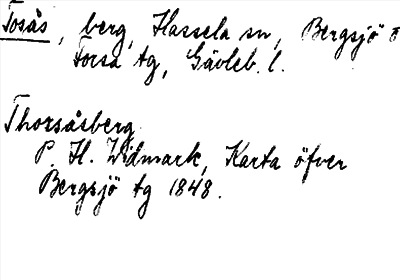 Tosås, berg, Hassela sn, Bergsjö o
Forsa tg, Gävleb. l.
Thorsåsberg
P. H. Widmark, Karta öfver
Bergsjö tg 1848.